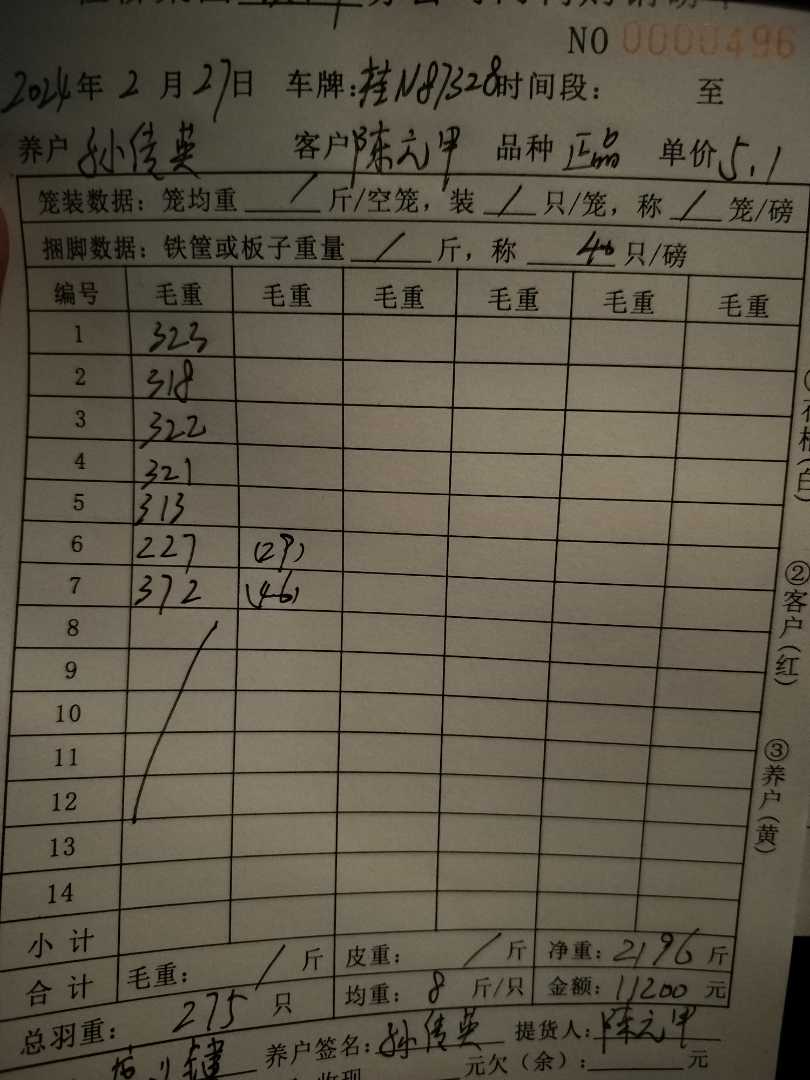 NO 0000496
2024年 2 月 27日 车牌:桂N87328时间段: 至
养户 孙传英 客户 陈元甲 品种 正品 单价 5.1
笼装数据: 笼均重 / 斤/空笼, 装 / 只/笼, 称 / 笼/磅
捆脚数据: 铁筐或板子重量 / 斤, 称 40 只/磅
编号 毛重 毛重 毛重 毛重 毛重 毛重
1 323
2 318
3 322
4 321
5 313
6 227 (29)
7 372 (46)
8
9
10
11
12
13
14
小 计
合 计 毛重: / 斤 皮重: / 斤 净重: 2196 斤
总羽重: 275 只 均重: 8 斤/只 金额: 11200 元
养户签名: 孙传英 提货人: 陈元甲
元欠(余): 元
②客户(红)
③养户(黄)